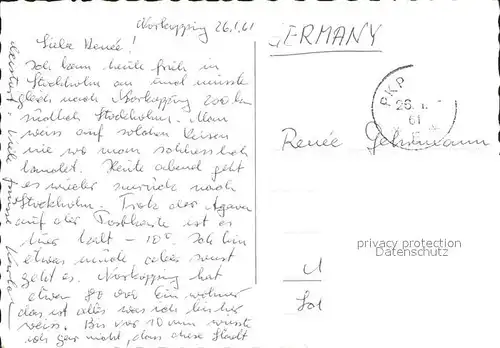 Norkøpping 26.1.61
Liebe Renée!
Ich kam heute früh in
Stockholm an und musste
gleich nach Norkøpping 200 km
südlich Stockholms. Man
weiss auf solchen Reisen
nie wo man schliesslich
landet. Heute abend geht
es wieder zurück nach
Stockholm. Trotz der Agaven
auf der Postkarte ist es
hier kalt – 10°. Ich bin
etwas müde, alles sonst
geht es. Norkøpping hat
etwa 80 000 Einwohner
das ist alles was ich bisher
weiss. Bis vor 10 min wusste
ich gar nicht, dass diese Stadt
GERMANY
PKP
26. 1.
61
Renée Gehrmann
privacy protection
Datenschutz